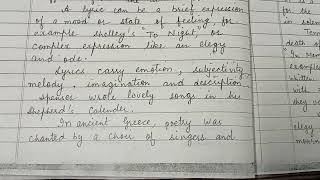 A lyric can be a brief expression
of a mood or state of feeling, for
example shelley's "To Night", or
complex expression like an elegy
and ode.
Lyrics carry emotion, subjectivity,
melody, imagination and description
Spenser wrote lovely songs in his
Shepherd's Calender.
In ancient Greece, poetry was
chanted by a choir of singers and
for the
in
in solem
Ten
death of
"In Mem
example
written
with
they
elegy
mourni